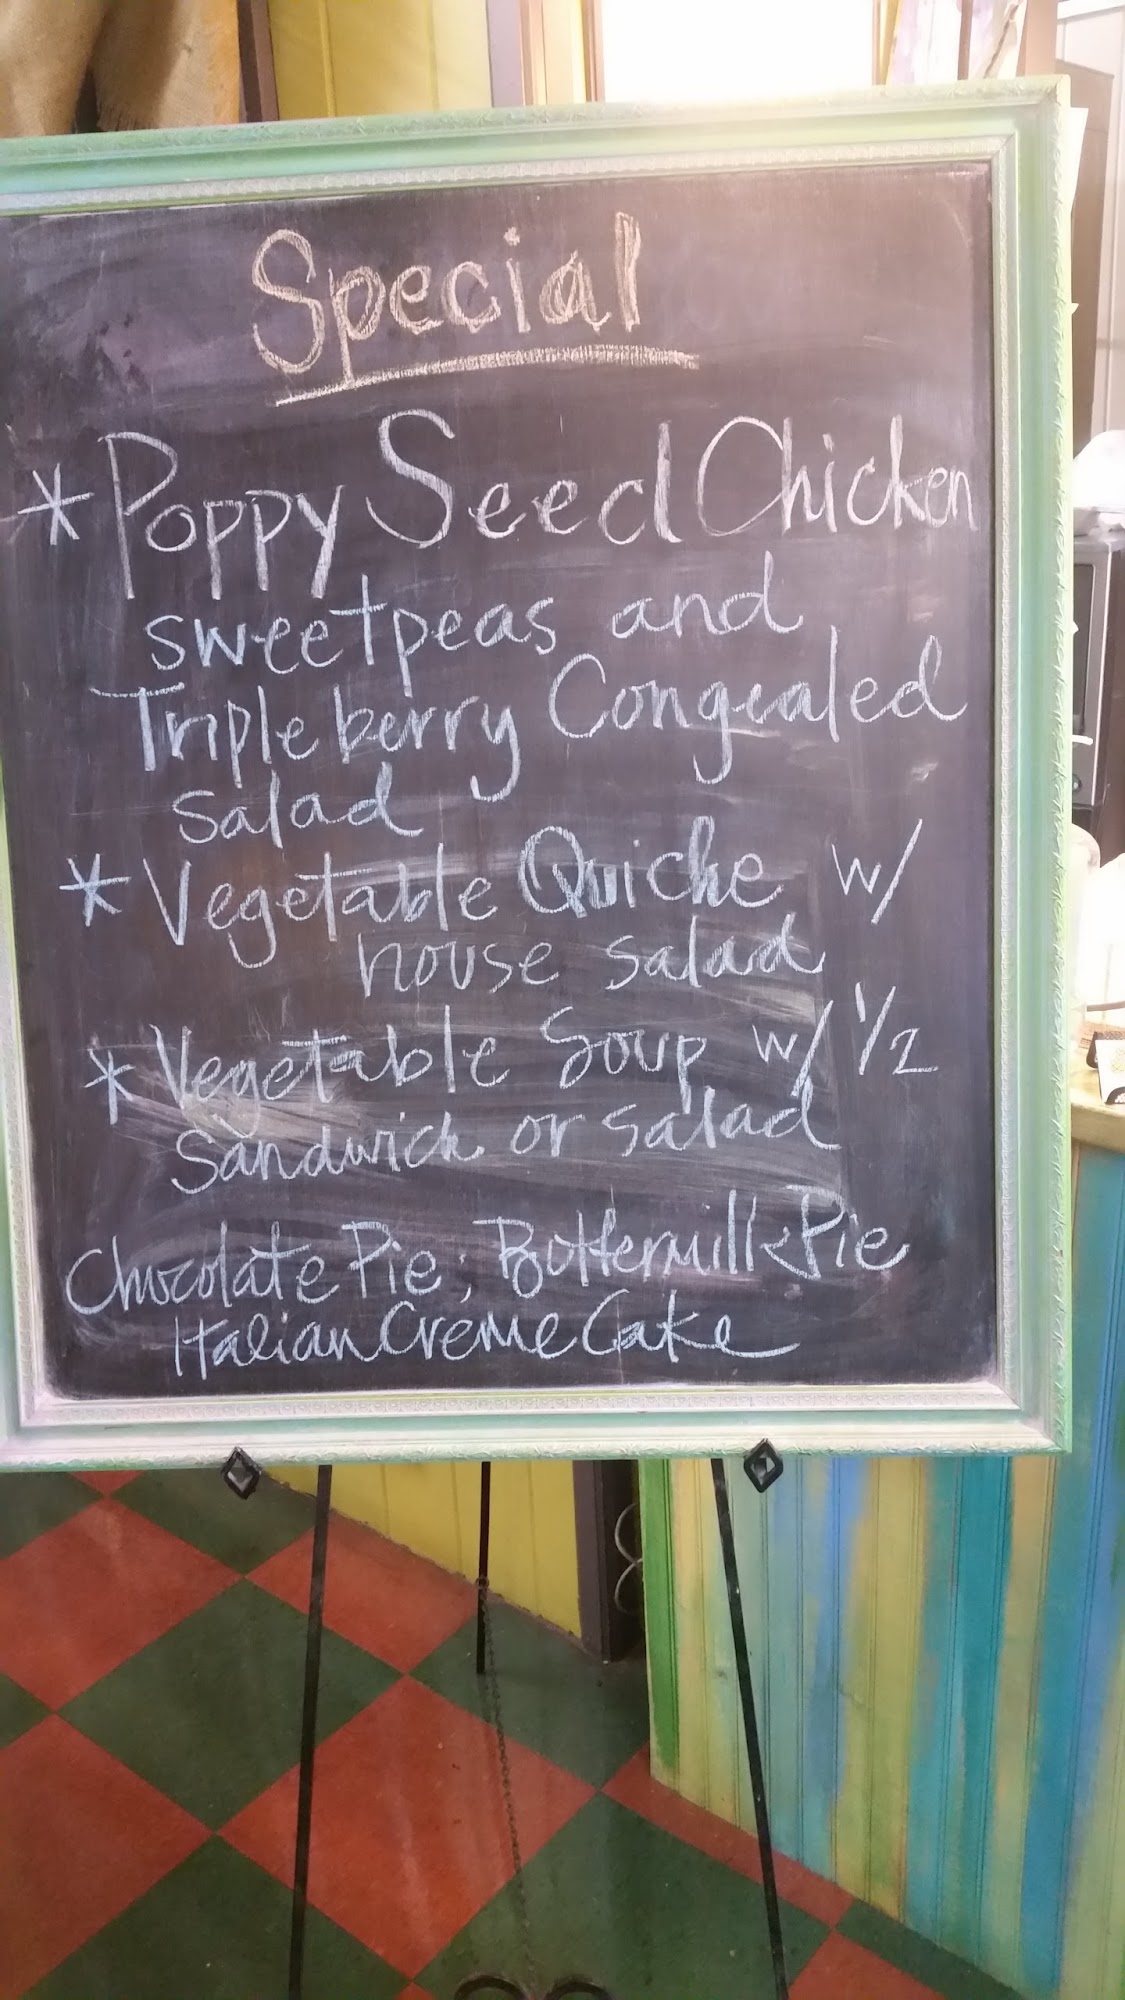 Special
* Poppy Seed Chicken
sweetpeas and
Tripleberry Congealed
salad
* Vegetable Quiche w/
house salad
* Vegetable Soup w/ 1/2
Sandwich or salad
Chocolate Pie, Buttermilk Pie
Italian Creme Cake